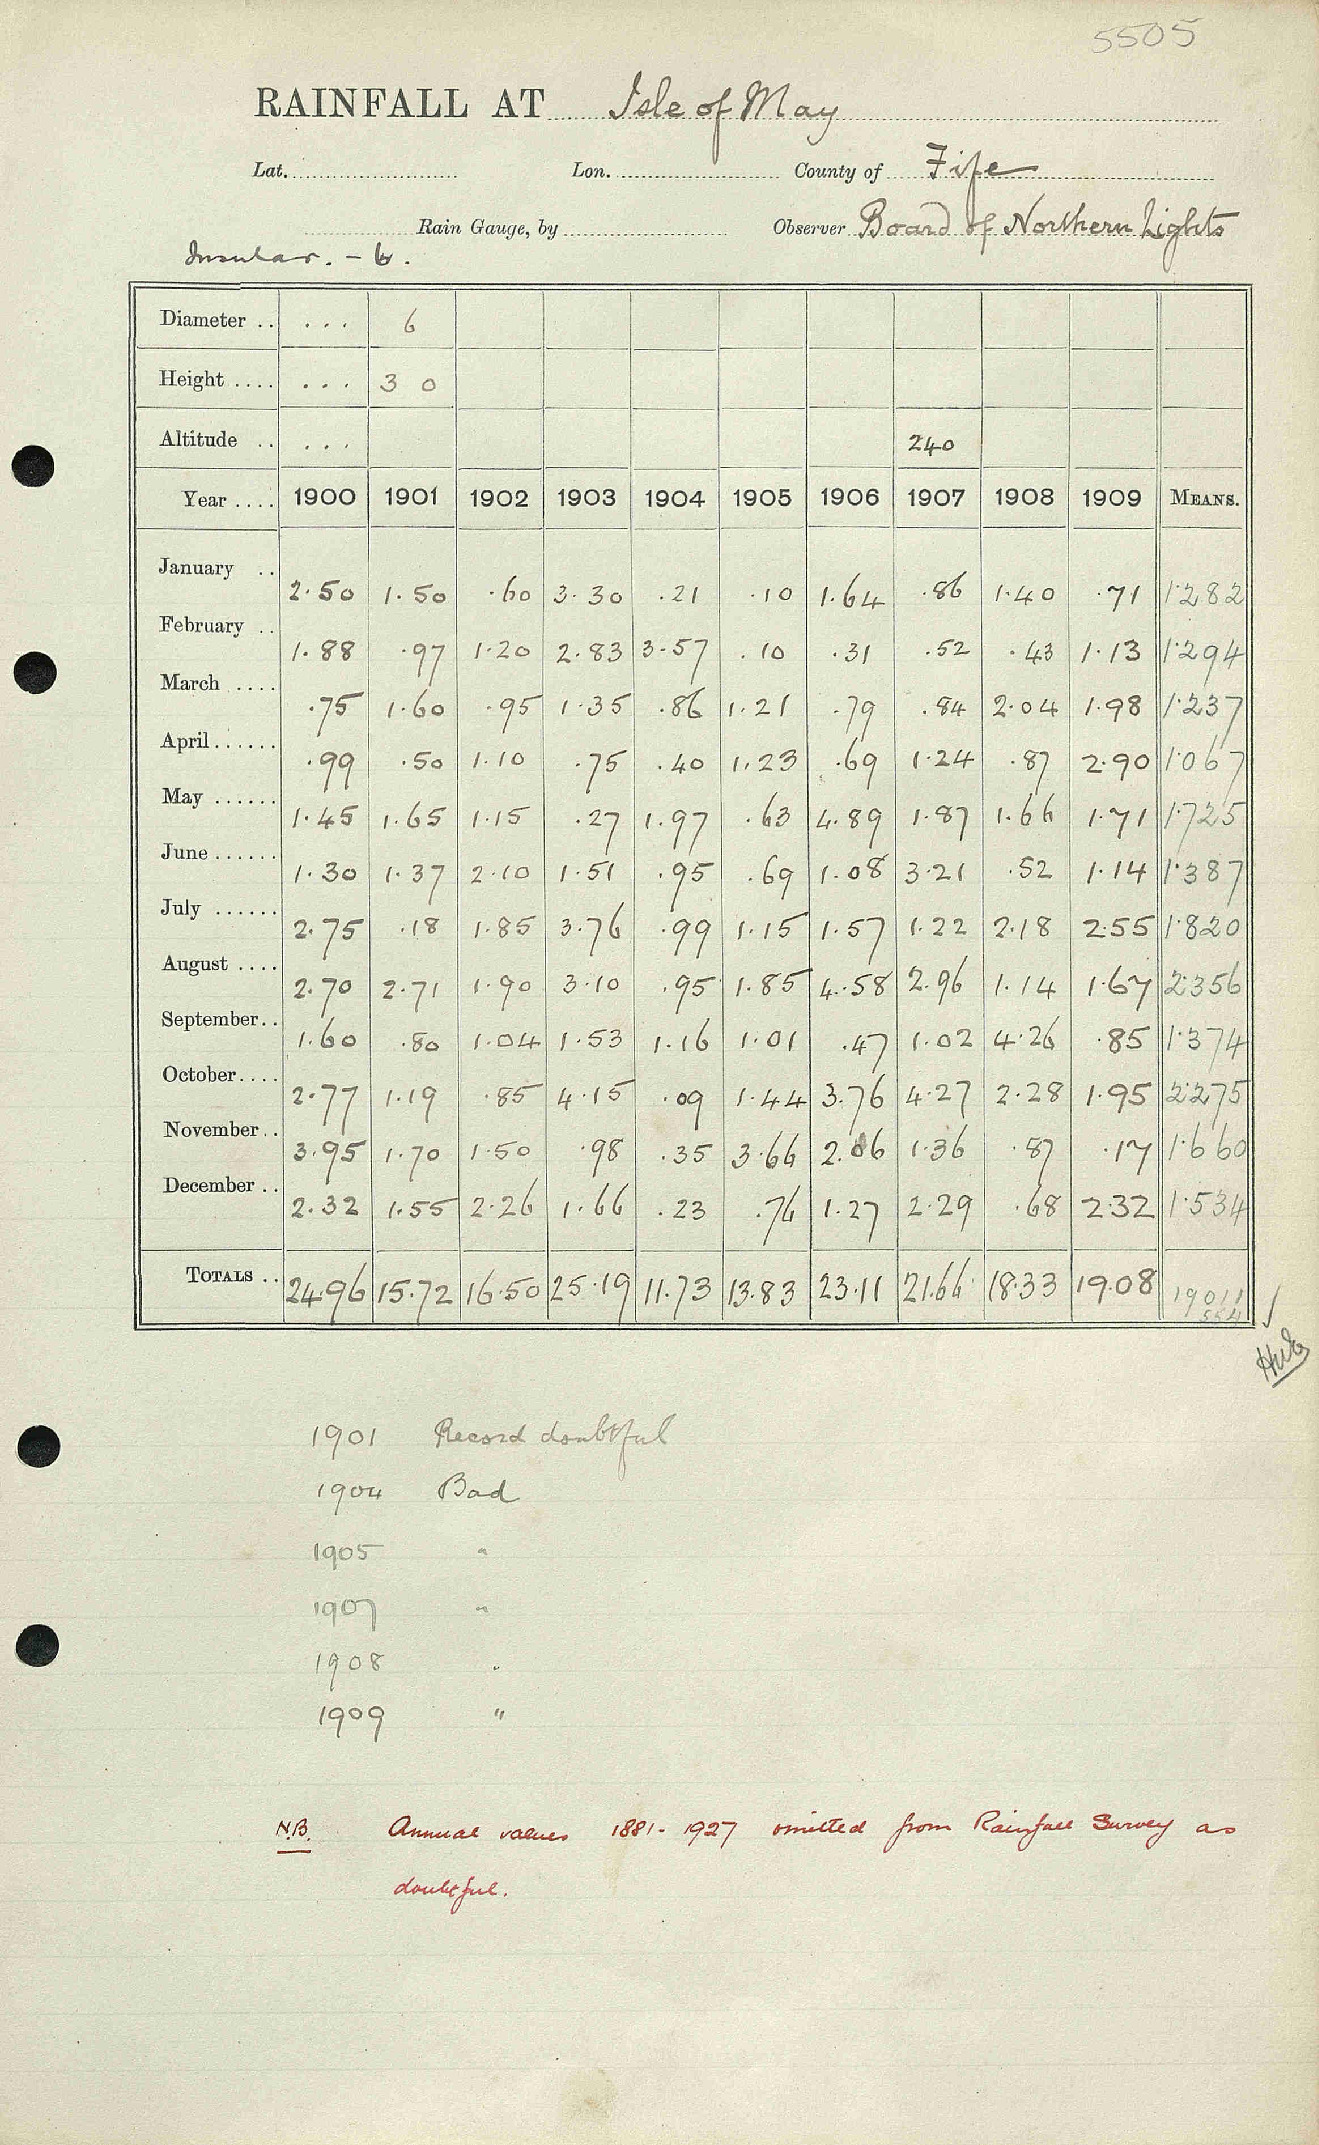 5505
RAINFALL AT Isle of May
Lat. Lon. County of Fife
Rain Gauge, by Observer Board of Northern Lights
Insular. - 6.
Diameter .. ... 6
Height .... ... 3 0
Altitude .. ... 240
Year .... 1900 1901 1902 1903 1904 1905 1906 1907 1908 1909 MEANS.
January .. 2.50 1.50 .60 3.30 .21 .10 1.64 .86 1.40 .71 1.282
February .. 1.88 .97 1.20 2.83 3.57 .10 .31 .52 .43 1.13 1.294
March .... .75 1.60 .95 1.35 .86 1.21 .79 .84 2.04 1.98 1.237
April...... .99 .50 1.10 .75 .40 1.23 .69 1.24 .87 2.90 1.067
May ...... 1.45 1.65 1.15 .27 1.97 .63 4.89 1.87 1.66 1.71 1.725
June...... 1.30 1.37 2.10 1.51 .95 .69 1.08 3.21 .52 1.14 1.387
July ...... 2.75 .18 1.85 3.76 .99 1.15 1.57 1.22 2.18 2.55 1.820
August .... 2.70 2.71 1.90 3.10 .95 1.85 4.58 2.96 1.14 1.67 2.356
September.. 1.60 .80 1.04 1.53 1.16 1.01 .47 1.02 4.26 .85 1.374
October.... 2.77 1.19 .85 4.15 .09 1.44 3.76 4.27 2.28 1.95 2.275
November.. 3.95 1.70 1.50 .98 .35 3.66 2.06 1.36 .87 .17 1.660
December .. 2.32 1.55 2.26 1.66 .23 .76 1.27 2.29 .68 2.32 1.534
TOTALS .. 24.96 15.72 16.50 25.19 11.73 13.83 23.11 21.66 18.33 19.08 19011
554
1901 Record doubtful
1904 Bad
1905 "
1907 "
1908 "
1909 "
N.B. Annual values 1881-1927 omitted from Rainfall Survey as
doubtful.